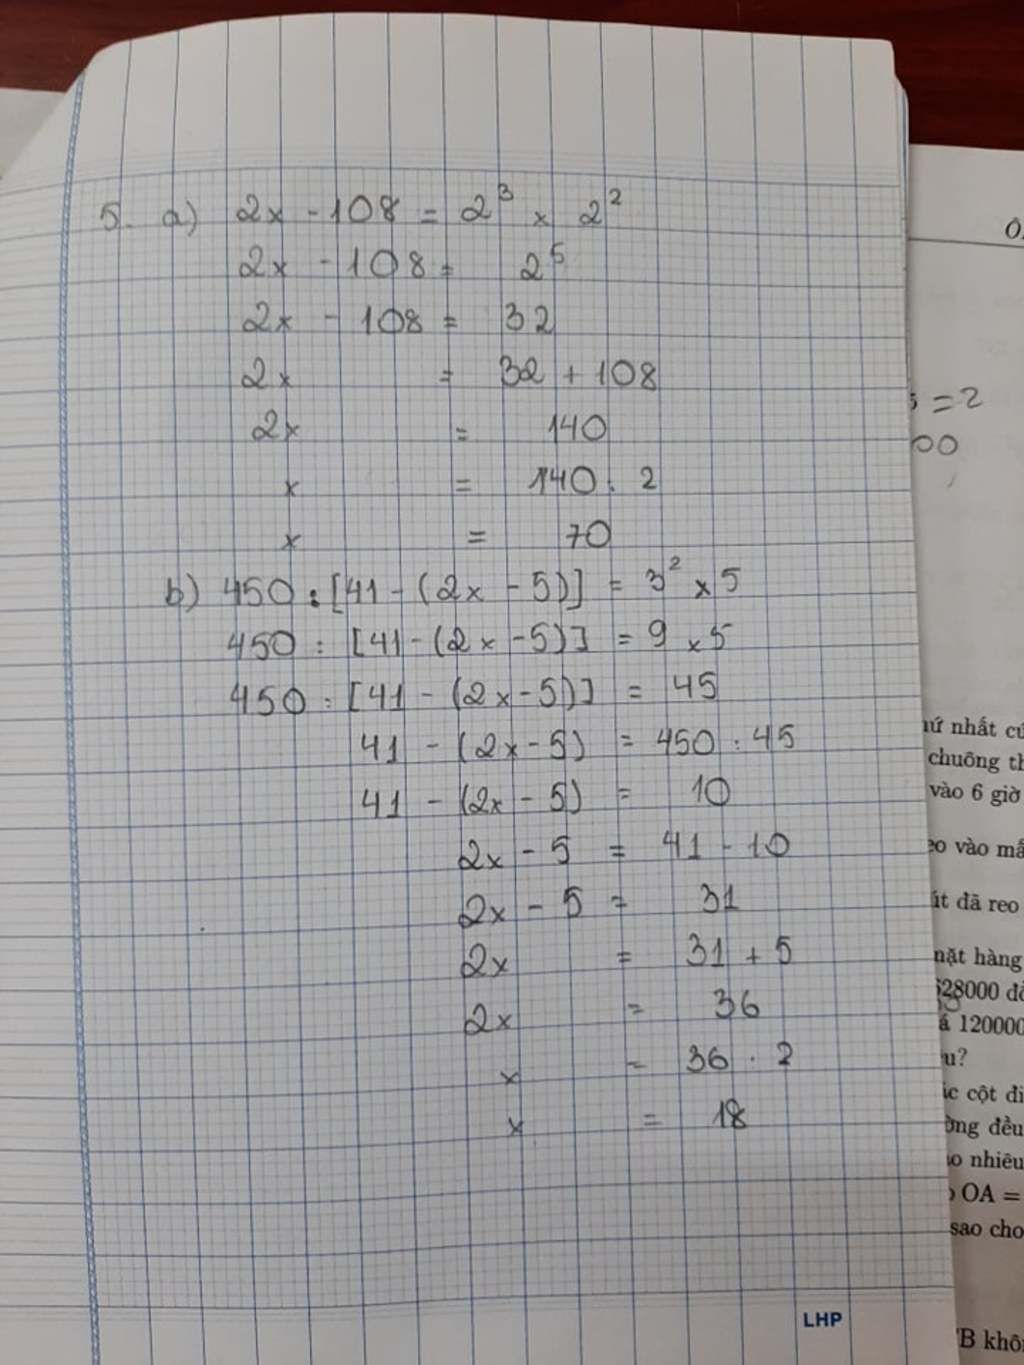 5. a) 2x - 108 = 2³ x 2²
2x - 108 = 2⁵
2x - 108 = 32
2x = 32 + 108
2x = 140
x = 140 : 2
x = 70
b) 450 : [41 - (2x - 5)] = 3² x 5
450 : [41 - (2x - 5)] = 9 x 5
450 : [41 - (2x - 5)] = 45
41 - (2x - 5) = 450 : 45
41 - (2x - 5) = 10
2x - 5 = 41 - 10
2x - 5 = 31
2x = 31 + 5
2x = 36
x = 36 : 2
x = 18
LHP
= 2
00
nhất
chuông
vào 6 giờ
vào
đã reo
hàng
28000
120000
u?
cột
đều
nhiêu
OA =
sao cho
B